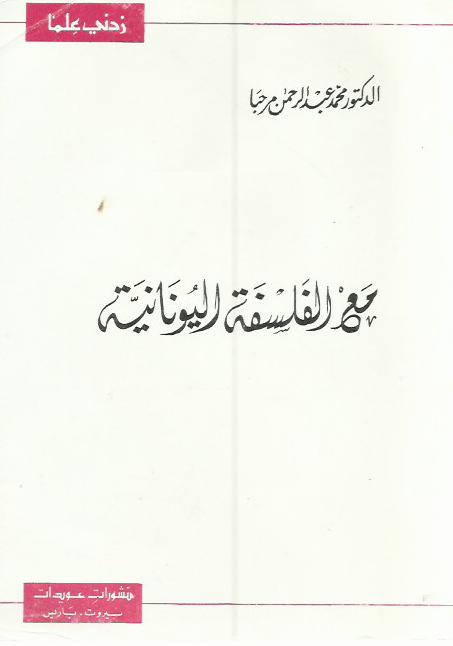 زدني علما
الدكتور محمد عبد الرحمن مرحبا
مَع الفَلسْفَة اليُونَانيَّة
منشورات عويدات
بيروت - باريس